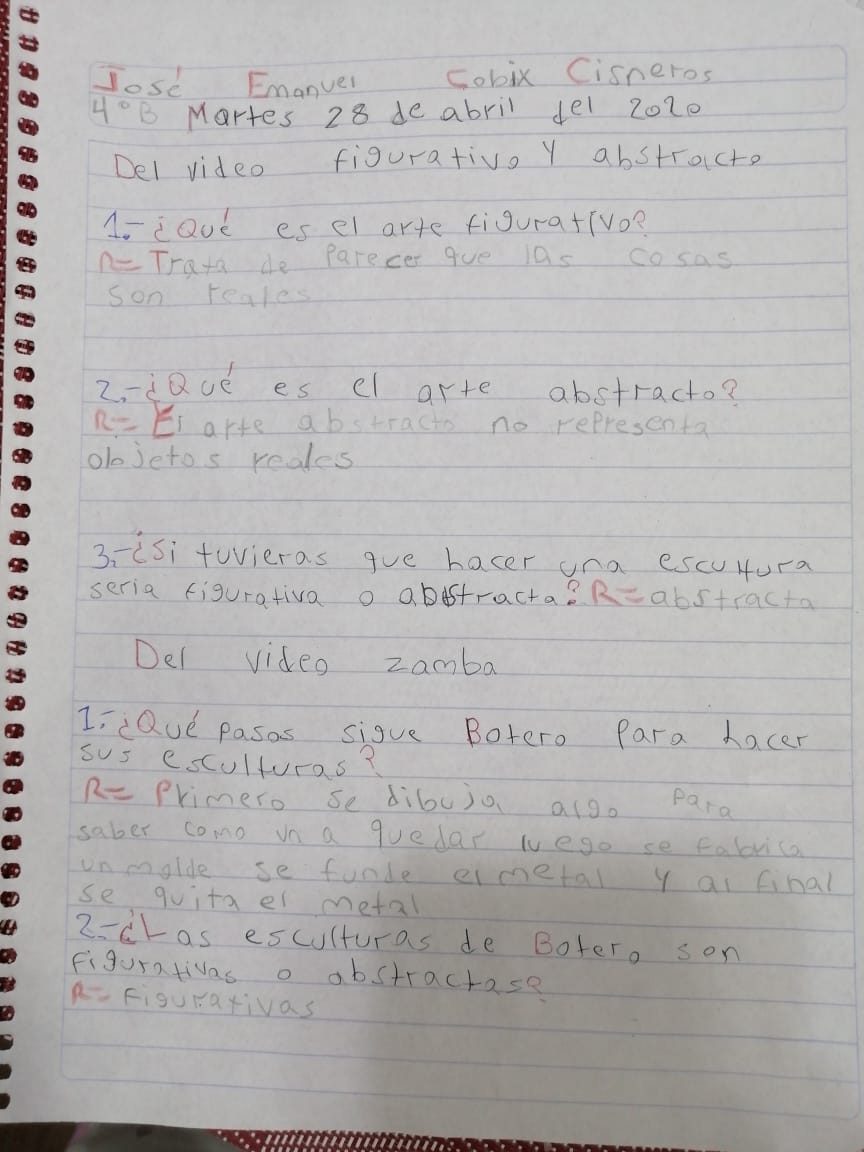 José Emanuel Cobix Cisneros
4°B Martes 28 de abril del 2020
Del video figurativo y abstracto
1.- ¿Qué es el arte figurativo?
R= Trata de parecer que las cosas
son reales
2.- ¿Qué es el arte abstracto?
R= El arte abstracto no representa
objetos reales
3.- ¿Si tuvieras que hacer una escultura
seria figurativa o abstracta? R= abstracta
Del video zamba
1.- ¿Qué pasos sigue Botero para hacer
sus esculturas?
R= Primero se dibuja algo para
saber como vn a quedar luego se fabrica
un molde se funde el metal y al final
se quita el metal
2.- ¿Las esculturas de Botero son
figurativas o abstractas?
R= Figurativas